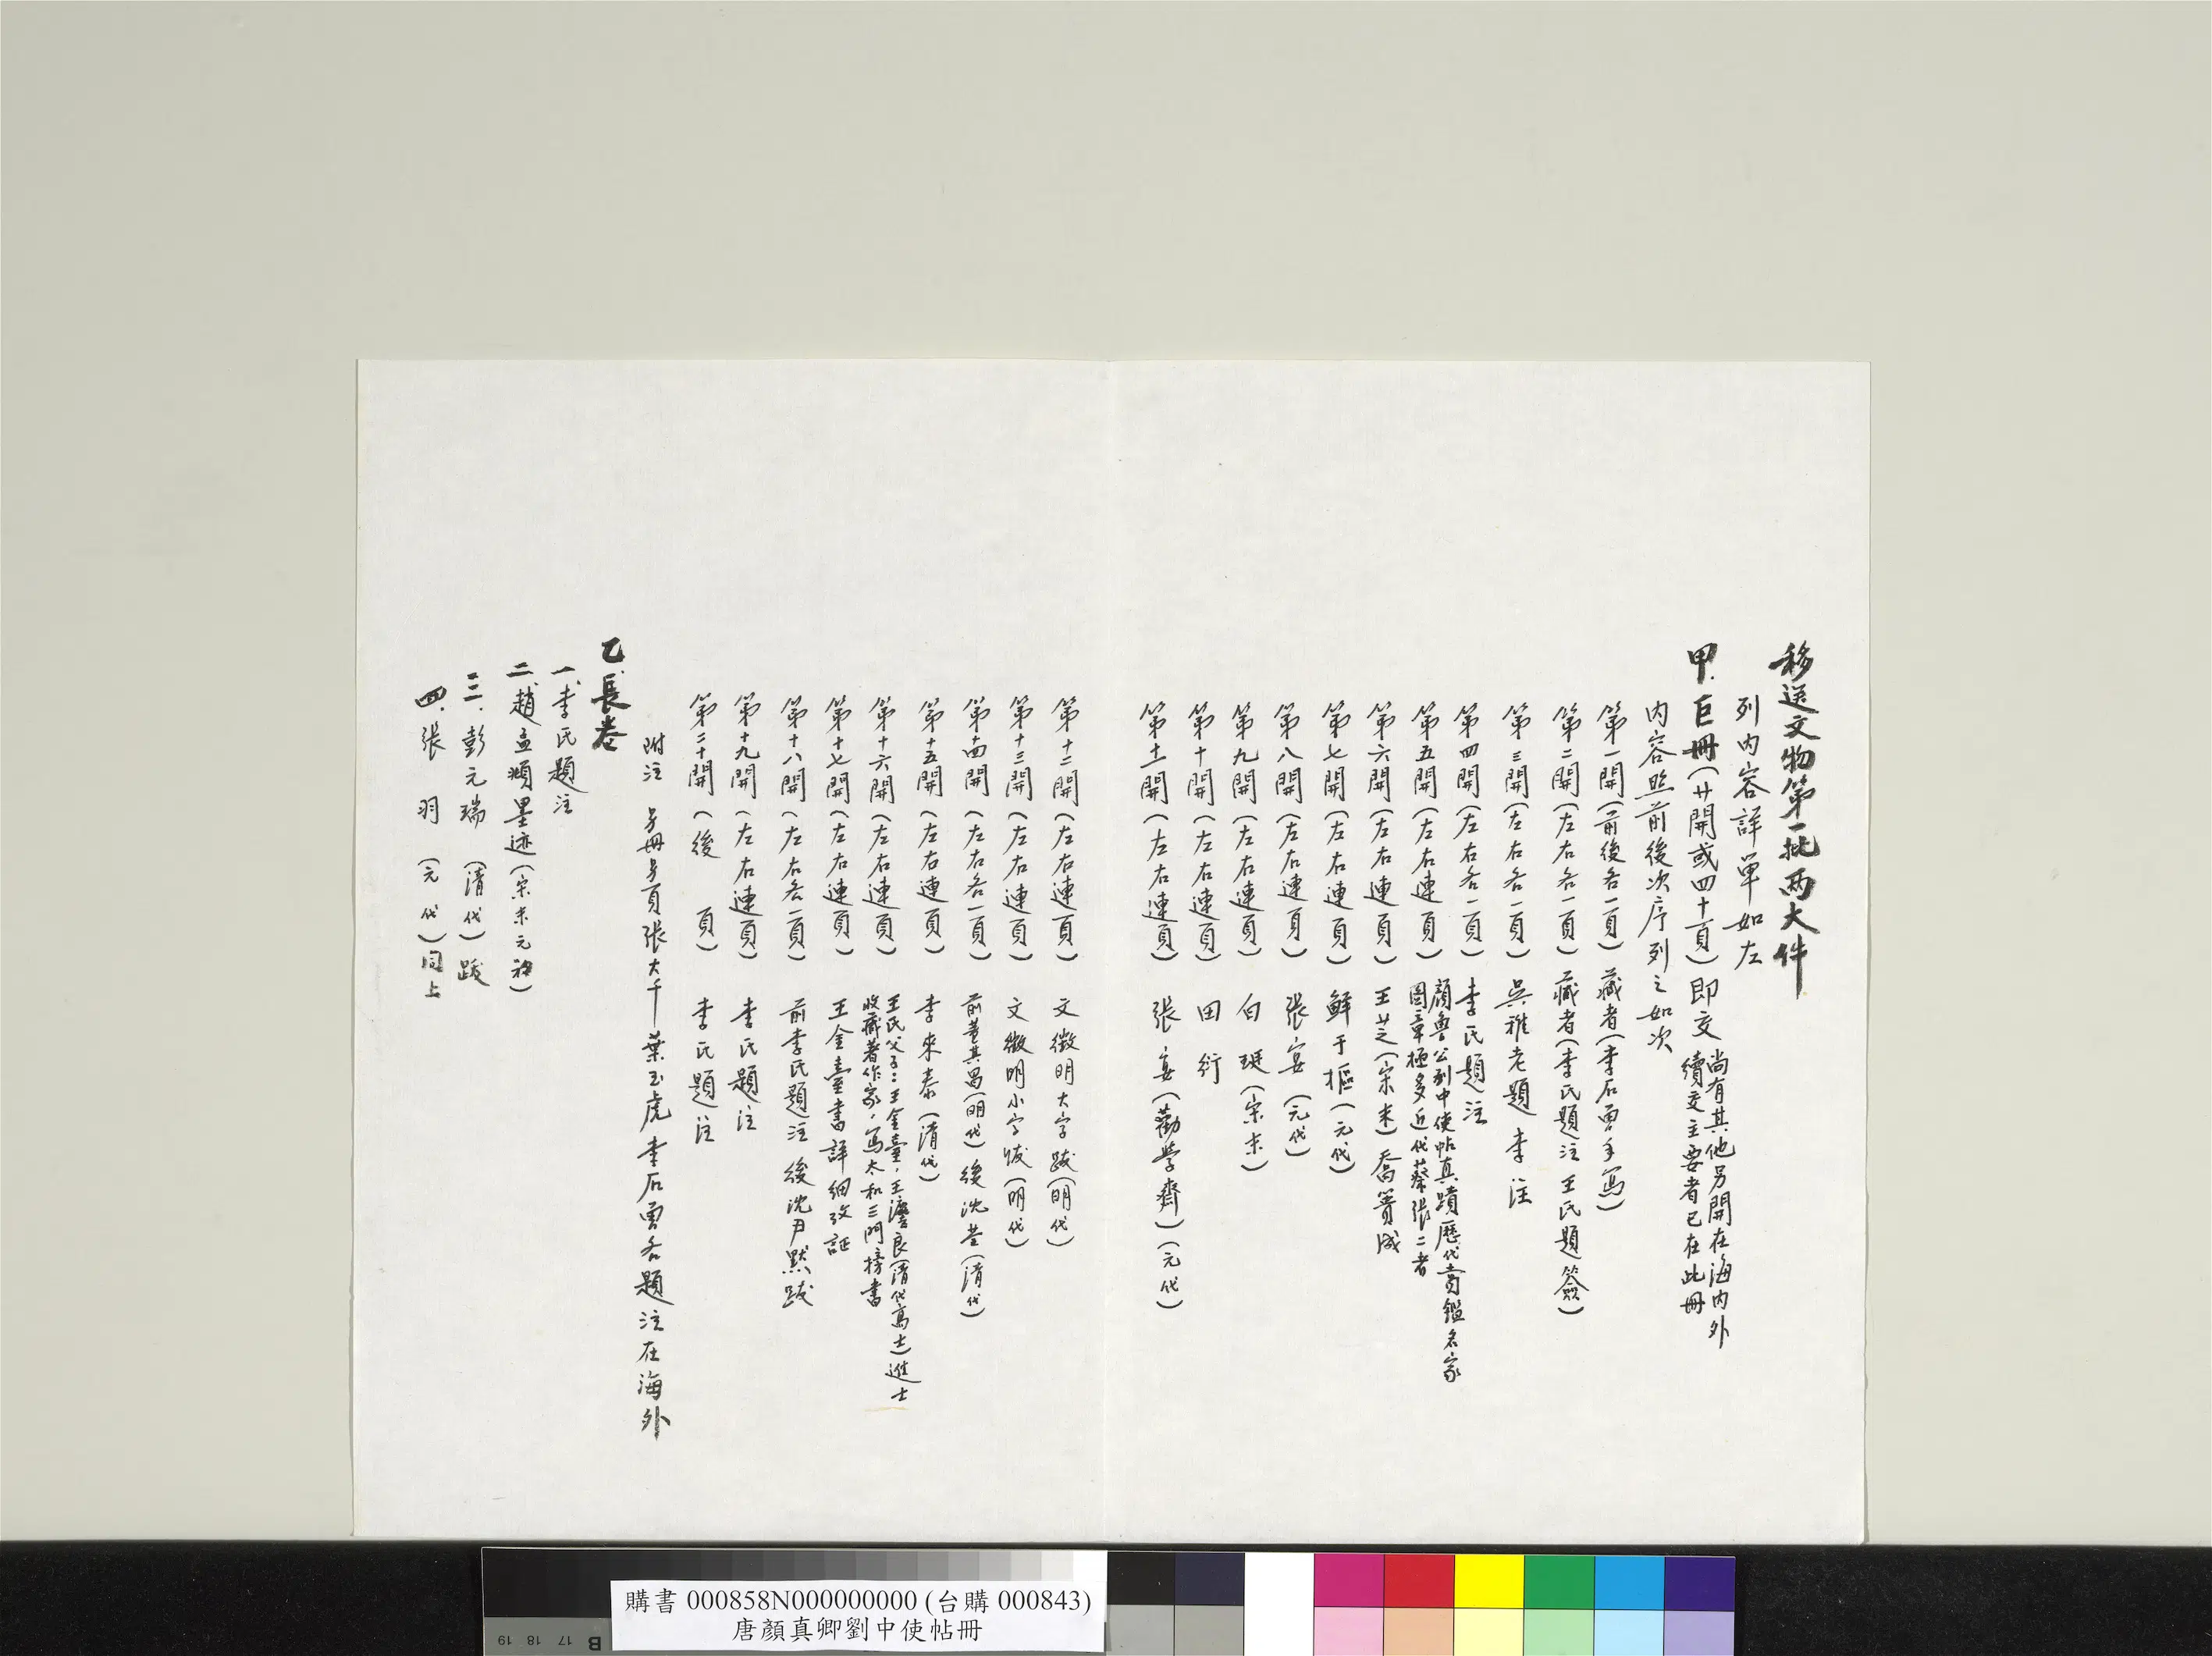 移送文物第一批兩大件
列內容詳單如左
甲.巨冊(廿開或四十頁)即交
尚有其他另開在海內外
續交主要者已在此冊
內容照前後次序列之如次
第一開(前後各一頁) 藏者(李石曾手寫)
第二開(左右各一頁) 藏者(李氏題注 王氏題簽)
第三開(左右各一頁) 吳稚老題 李注
第四開(左右各一頁) 李氏題注
第五開(左右連頁) 顏魯公劉中使帖真蹟歷代賞鑑名家
圖章極多近代蔡張二者
第六開(左右連頁) 王芝(宋末)喬簣成
第七開(左右連頁) 鮮于樞(元代)
第八開(左右連頁) 張宴(元代)
第九開(左右連頁) 白珽(宋末)
第十開(左右連頁) 田衍
第十一開(左右連頁) 張宴(勤學齋)(元代)
第十二開(左右連頁) 文徵明大字跋(明代)
第十三開(左右連頁) 文徵明小字跋(明代)
第十四開(左右各一頁) 前董其昌(明代)後沈荃(清代)
第十五開(左右連頁) 李來泰(清代)
第十六開(左右連頁) 王氏父子:王金臺,王澐良(清代高士)進士
收藏著作家,寫太和三門榜書
第十七開(左右連頁) 王金臺書詳細攷証
第十八開(左右各一頁) 前李氏題注 後沈尹默跋
第十九開(左右連頁) 李氏題注
第二十開(後 頁) 李氏題注
附注 另冊另頁張大千葉玉虎李石曾各題注在海外
乙.長卷
一.李氏題注
二.趙孟頫墨迹(宋末元初)
三.彭元瑞 (清代)跋
四.張 羽 (元代)同上
購書 000858N000000000 (台購 000843)
唐顏真卿劉中使帖冊
B 17 18 19